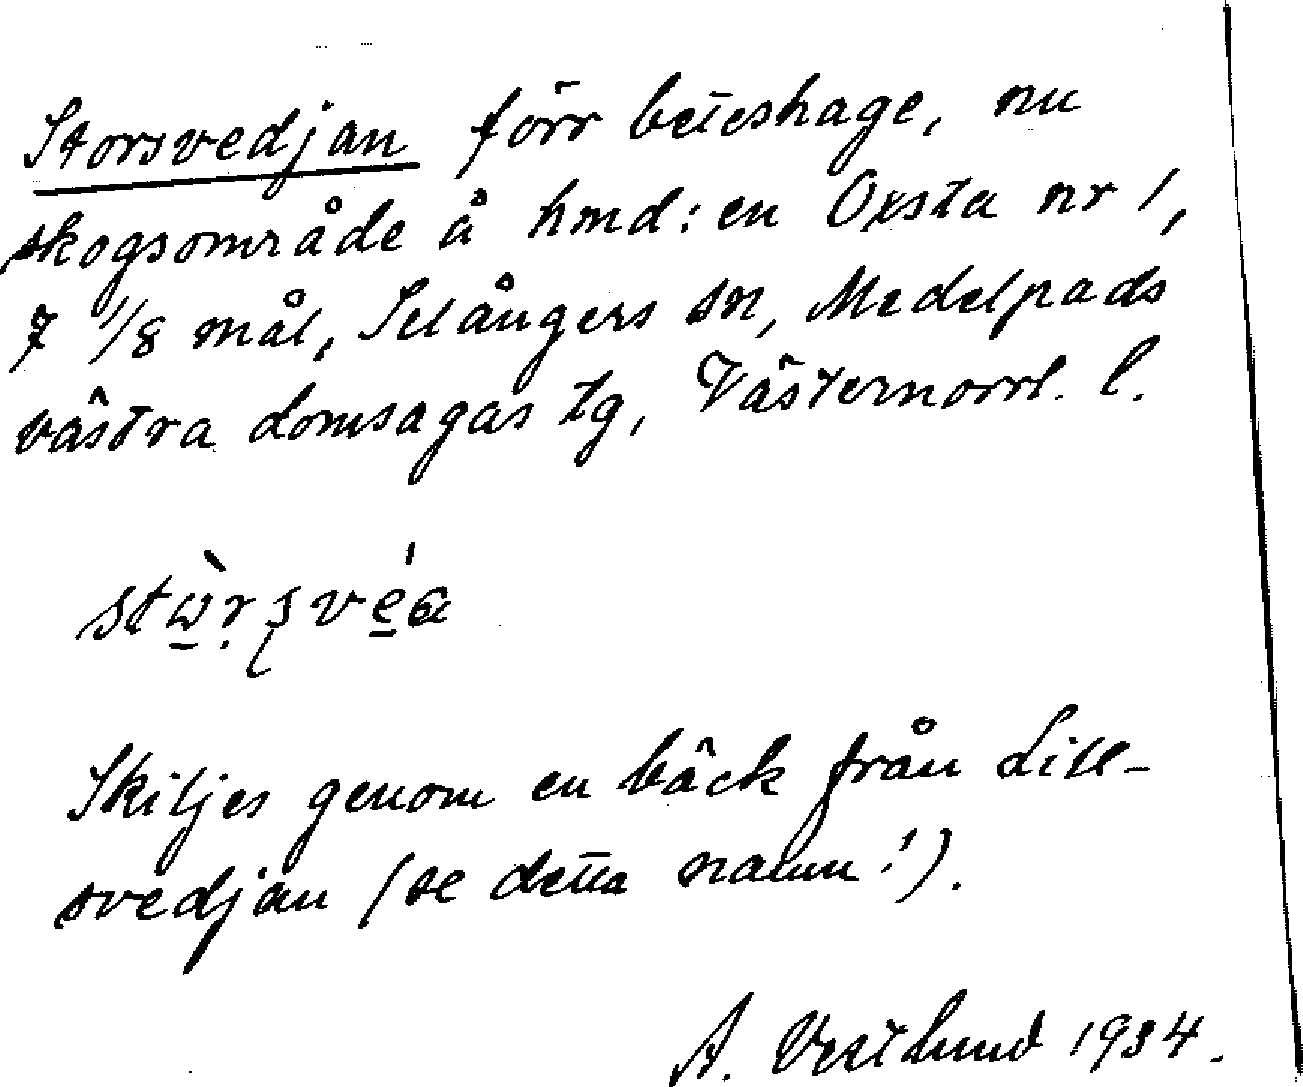 Storsvedjan förr beteshage, nu
skogsområde å hmd:en Oxsta nr 1,
7 1/8 mål, Selångers sn, Medelpads
västra domsagas tg, Västernorrl. l.
Skiljes genom en bäck från Lill-
svedjan (se detta namn!).
A. Vestlund 1934.